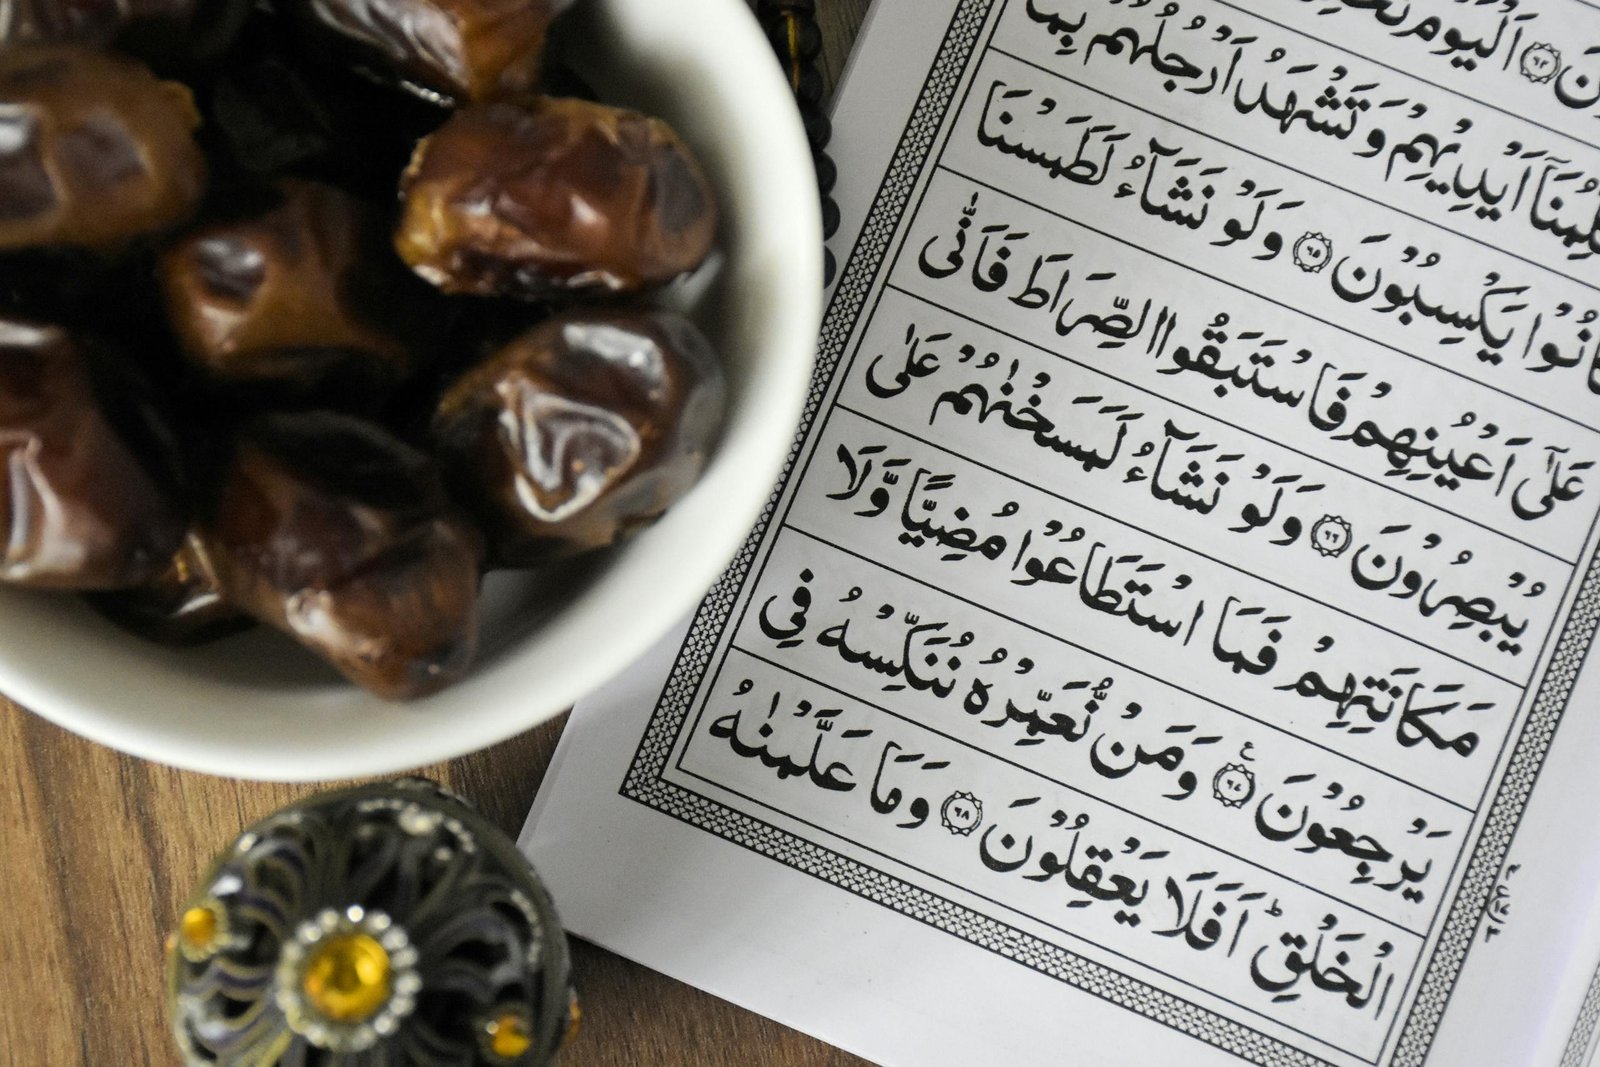 اَلْيَوْمَ
اَيْدِيْهِمْ وَتَشْهَدُ اَرْجُلُهُمْ بِمَا
كَانُوْا يَكْسِبُوْنَ ۝٦٥ وَلَوْ نَشَآءُ لَطَمَسْنَا
عَلٰٓى اَعْيُنِهِمْ فَاسْتَبَقُوا الصِّرَاطَ فَاَنّٰى
يُبْصِرُوْنَ ۝٦٦ وَلَوْ نَشَآءُ لَمَسَخْنٰهُمْ عَلٰى
مَكَانَتِهِمْ فَمَا اسْتَطَاعُوْا مُضِيًّا وَّلَا
يَرْجِعُوْنَ ۝٦٧ ع وَمَنْ نُّعَمِّرْهُ نُنَكِّسْهُ فِى
الْخَلْقِ ؕ اَفَلَا يَعْقِلُوْنَ ۝٦٨ وَمَا عَلَّمْنٰهُ